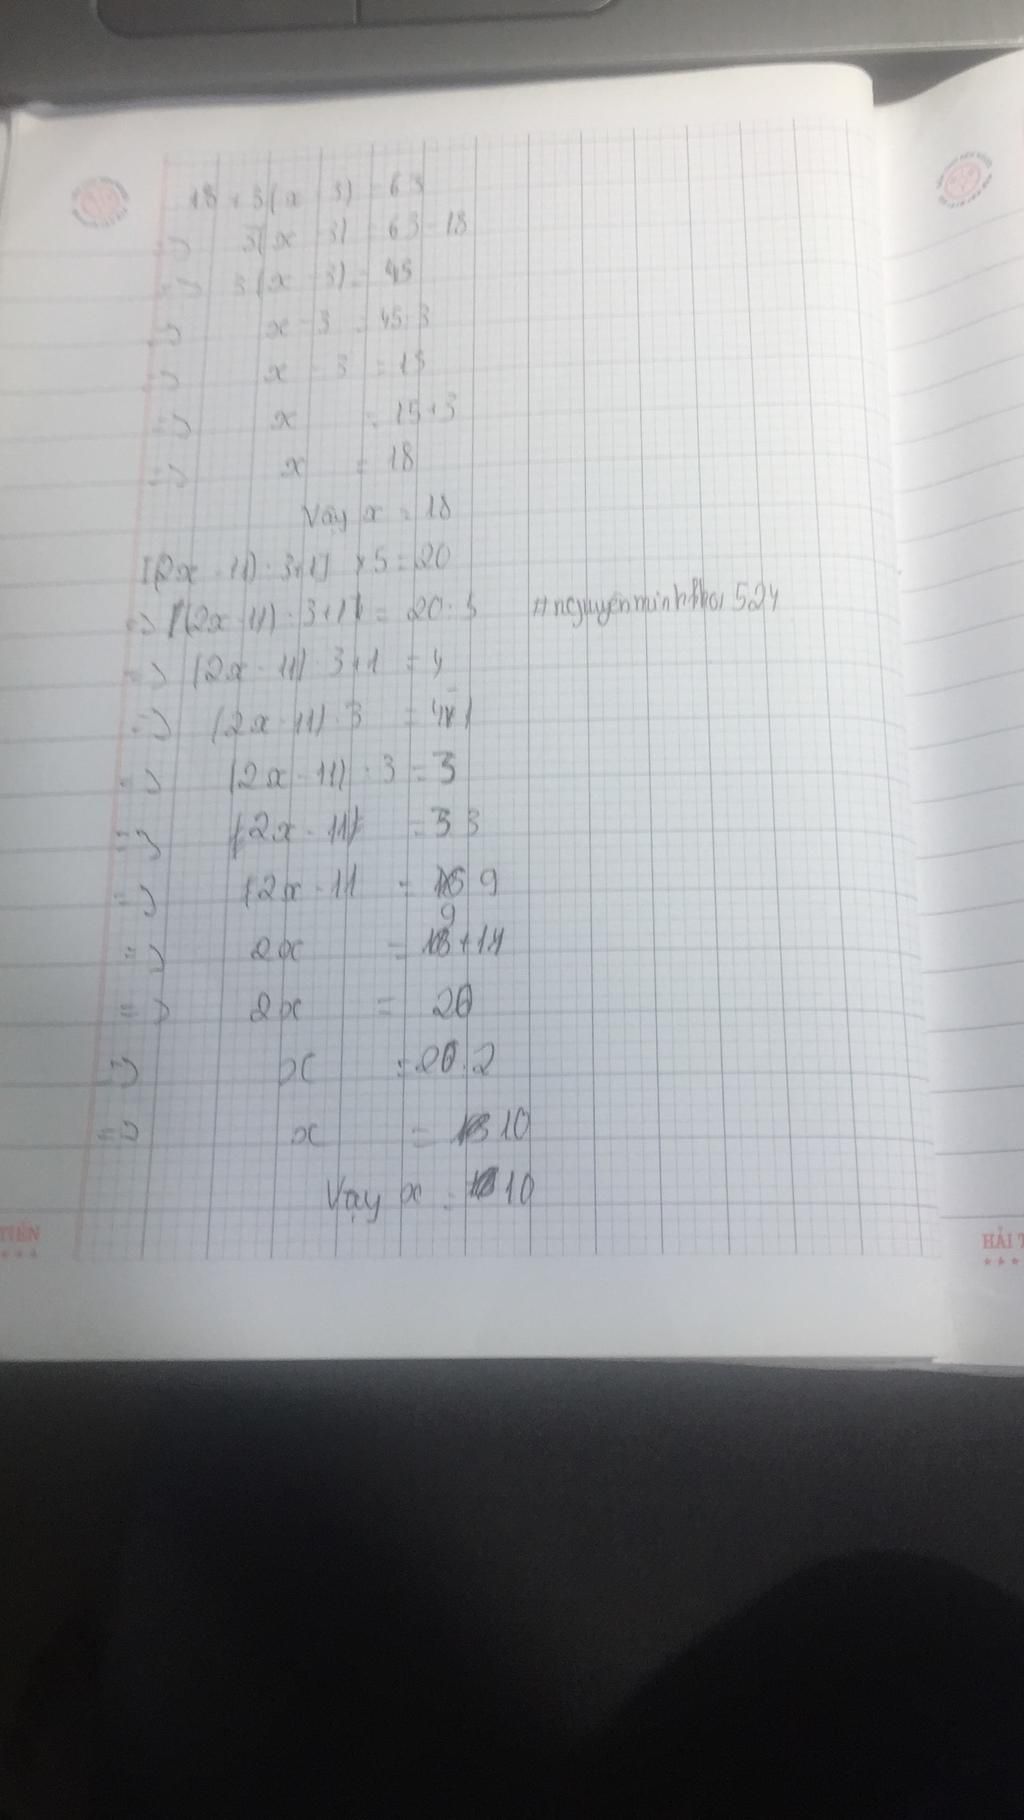 18 + 3(x - 3) = 63
=> 3(x - 3) = 63 - 18
=> 3(x - 3) = 45
=> x - 3 = 45 : 3
=> x - 3 = 15
=> x = 15 + 3
=> x = 18
Vậy x = 18
[(2x - 11) : 3 + 1] x 5 = 20
=> [(2x - 11) : 3 + 1] = 20 : 5 #nguyenminhthai524
=> (2x - 11) : 3 + 1 = 4
=> (2x - 11) : 3 = 4 - 1
=> (2x - 11) : 3 = 3
=> (2x - 11) = 3 . 3
=> (2x - 11 = 9
=> 2x = 9 + 11
=> 2x = 20
=> x = 20 : 2
=> x = 10
Vậy x = 10
TIẾN
HẢI T